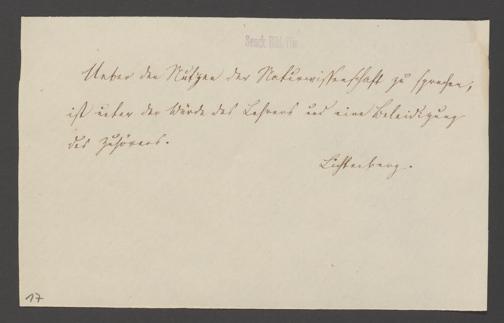 Senck. Bibl. Ffm
Ueber den Nützen der Naturwissenschaft zu sprechen,
ist unter der Würde des Lehrers und eine Beleidigung
des Zuhörers.
Lichtenberg.
17